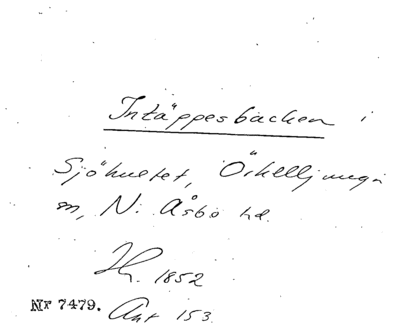 Intäppesbacken i
Sjöhultet, Örkelljunga
sn, N. Åsbo hd.
1852
Nr 7479. Ant 153